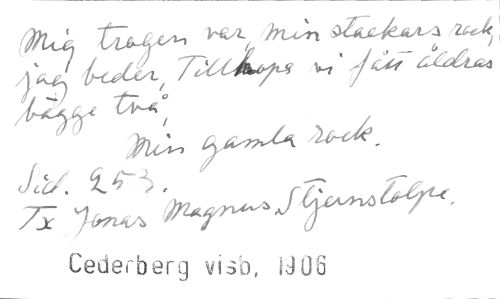 Mig trogen var, min stackars rock,
jag beder, Tillhopa vi fått åldras
bägge två,
Min gamla rock.
Sid. 253.
Tx Jonas Magnus Stjernstolpe.
Cederberg visb, 1906